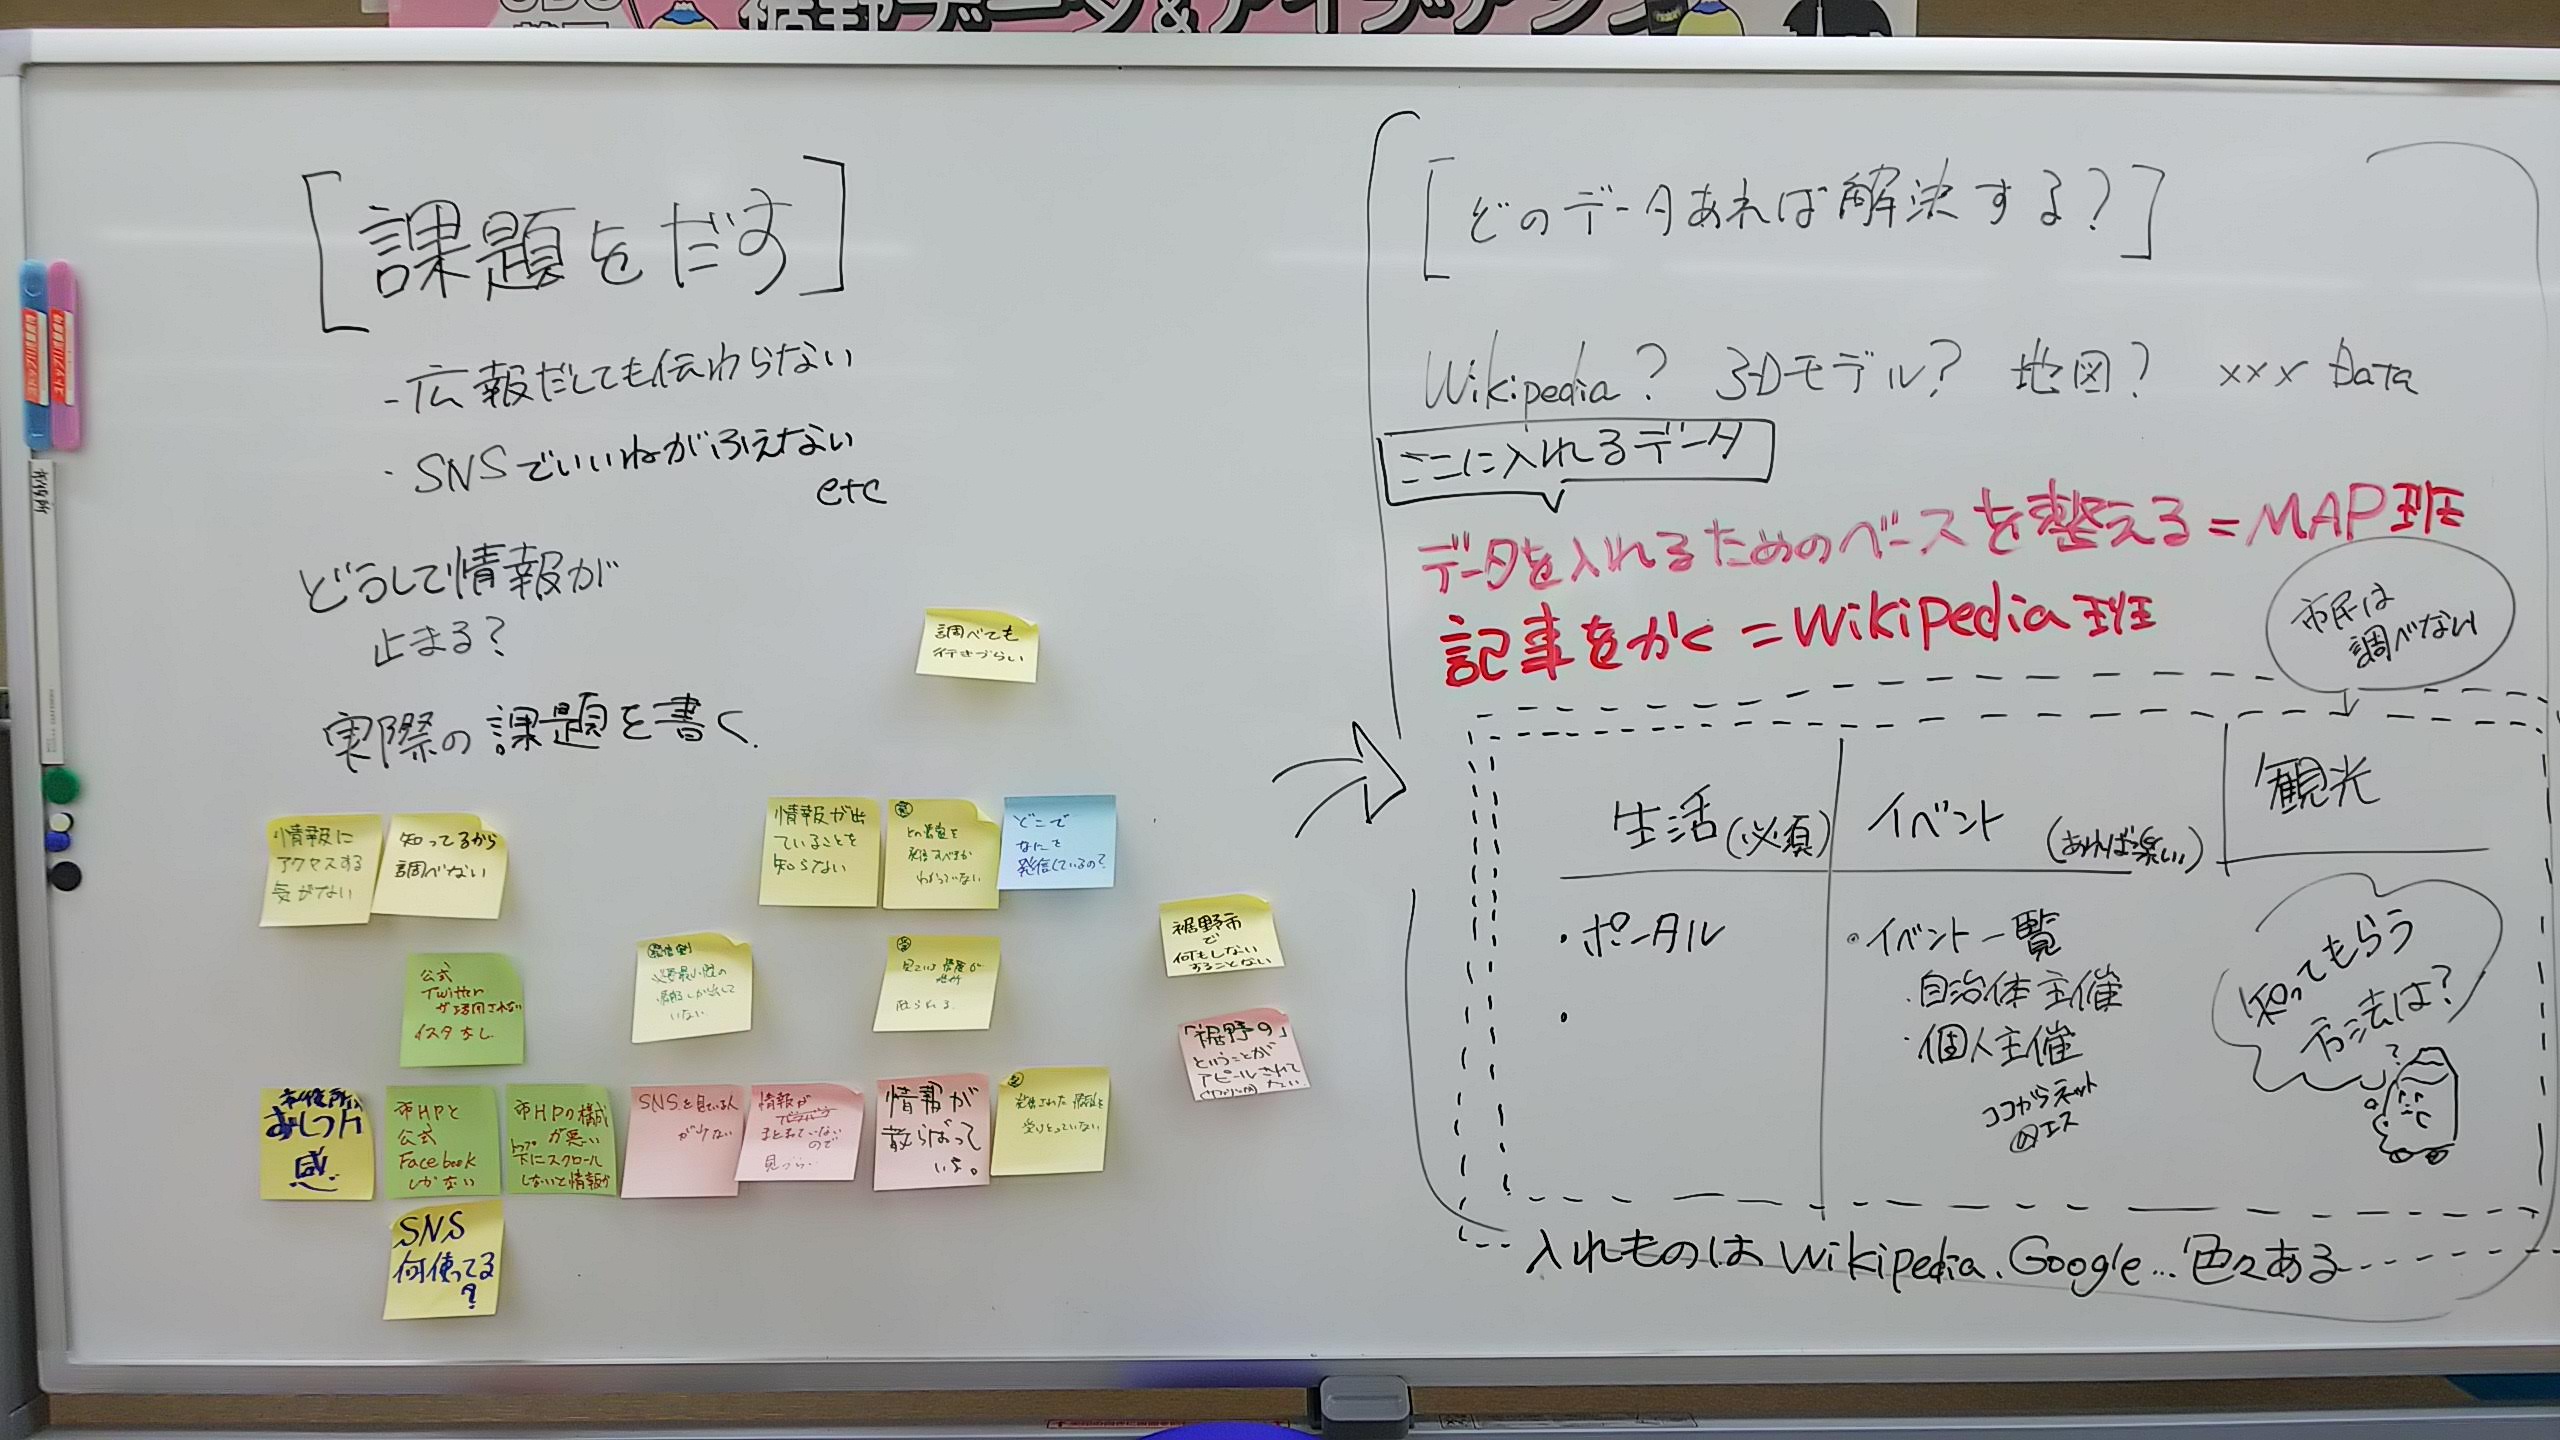 裾野データ&アイデアソン
[課題をだす]
- 広報だしても伝わらない
・SNSでいいねがふえない
etc
どうして情報が
止まる?
実際の課題を書く.
調べても
行きづらい
情報に
アクセスする
気がない
知ってるから
調べない
情報が出
ていることを
知らない
わかっていない
どこで
なにを
発信しているの?
公式
Twitter
が活用されない
イスタなし
必要最小限の
情報しか出して
いない
見ている情報が
限られる
裾野市
で
何もしない
することない
「裾野の」
ということが
アピールされて
ない
市役所の
おしつけ
感
市HPと
公式
Facebook
しかない
市HPの構成
が悪い
トップ
下にスクロール
しないと情報が
SNSを見ている人
が少ない
情報が
まとまっていない
ので
見づらい
情報が
散らばって
いる。
発信された情報を
受けとっていない
SNS
何使ってる
?
[どのデータあれば解決する?]
Wikipedia? 3Dモデル? 地図? xxx Data
ここに入れるデータ
データを入れるためのベースを整える=MAP班
記事をかく=Wikipedia班
市民は
調べない
生活(必須)
イベント
(あれば楽しい)
観光
・ポータル
・
・イベント一覧
・自治体主催
・個人主催
ココからネット
のエス
知ってもらう
方法は?
?
入れものはWikipedia、Google…色々ある